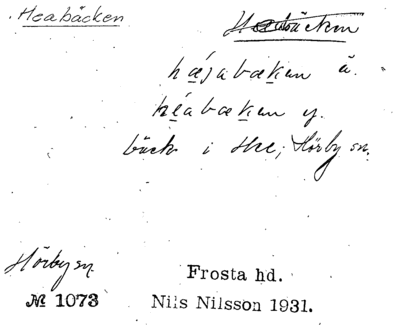 Heabäcken
Heabäcken
hǽjabækan ä.
héabækan y.
bäck i Hee, Hörby sn.
Hörby sn.
№ 1073
Frosta hd.
Nils Nilsson 1931.